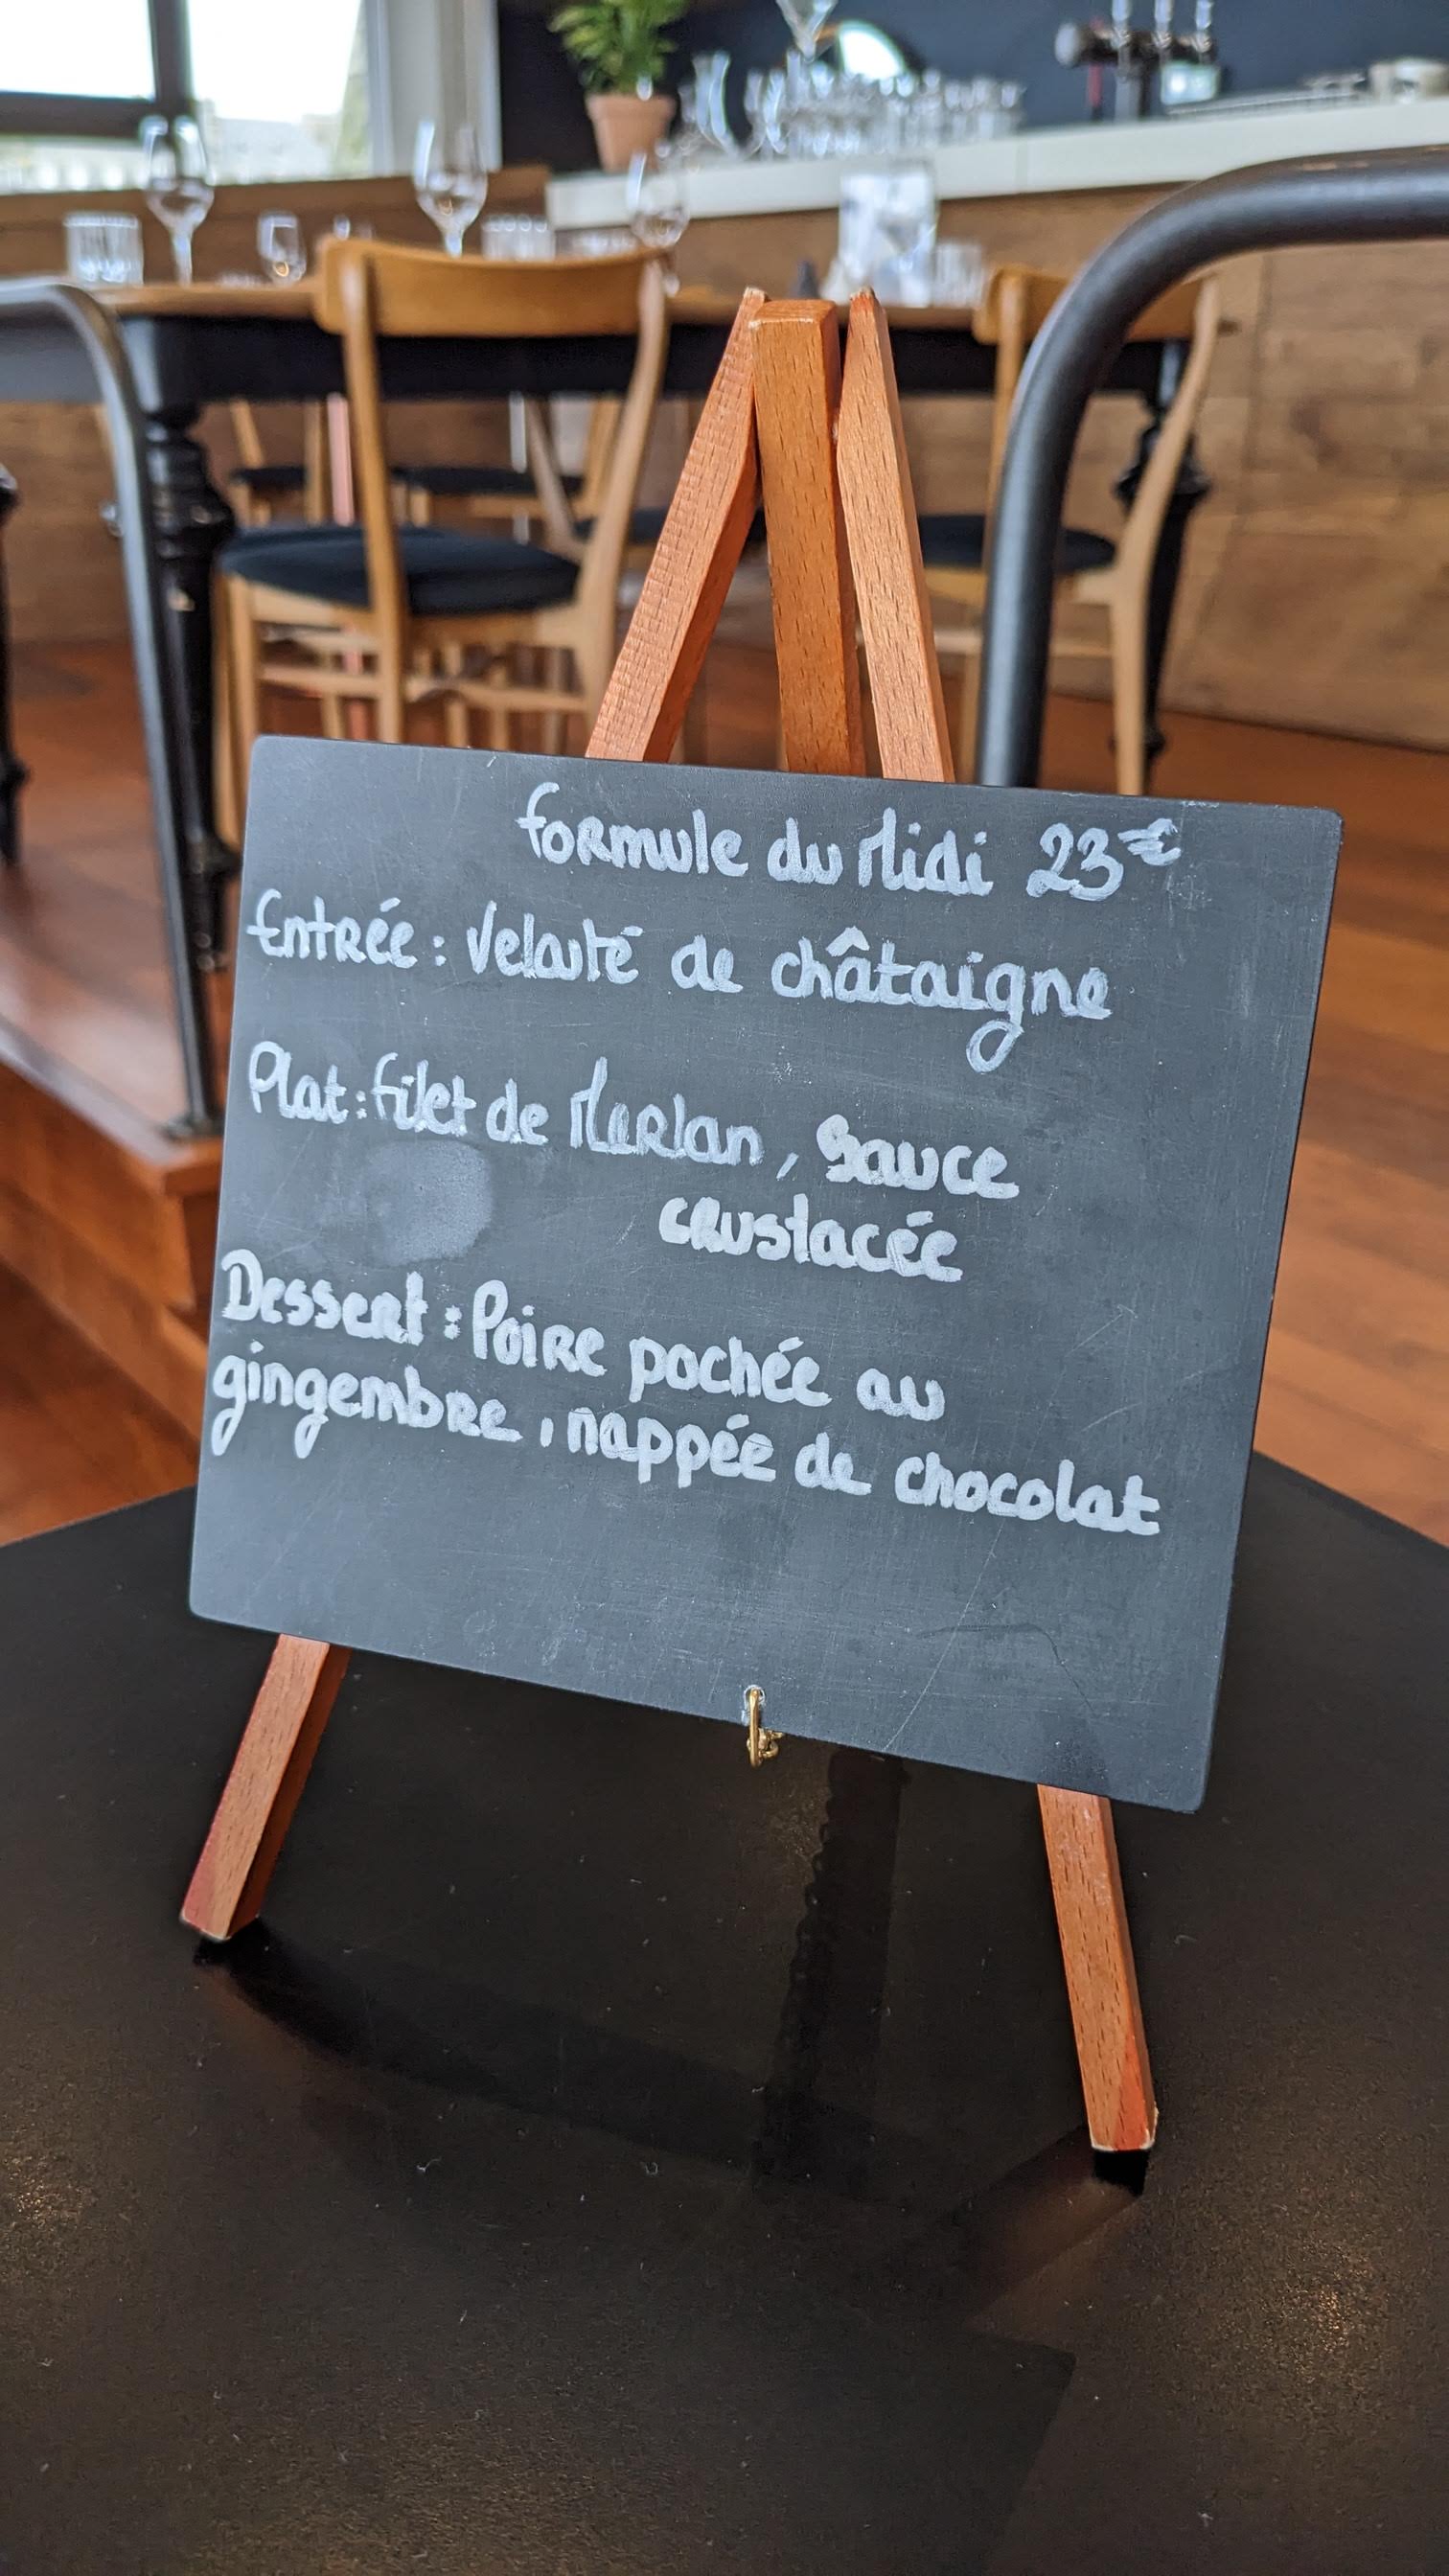 formule du Midi 23€
Entrée : Velouté de châtaigne
Plat : filet de Merlan, sauce
crustacée
Dessert : Poire pochée au
gingembre, nappée de chocolat